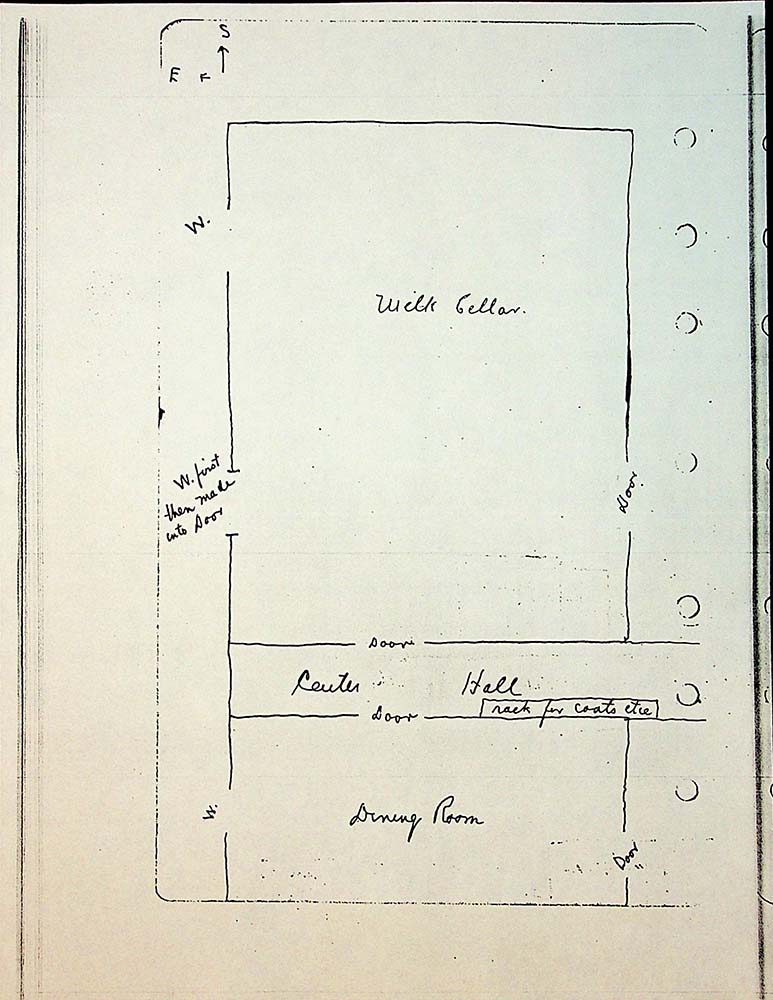 S
E
W.
Milk Cellar.
W. first
then made
into Door
Door
Door
Center Hall
rack for coats etc
Door
W.
Dining Room
Door